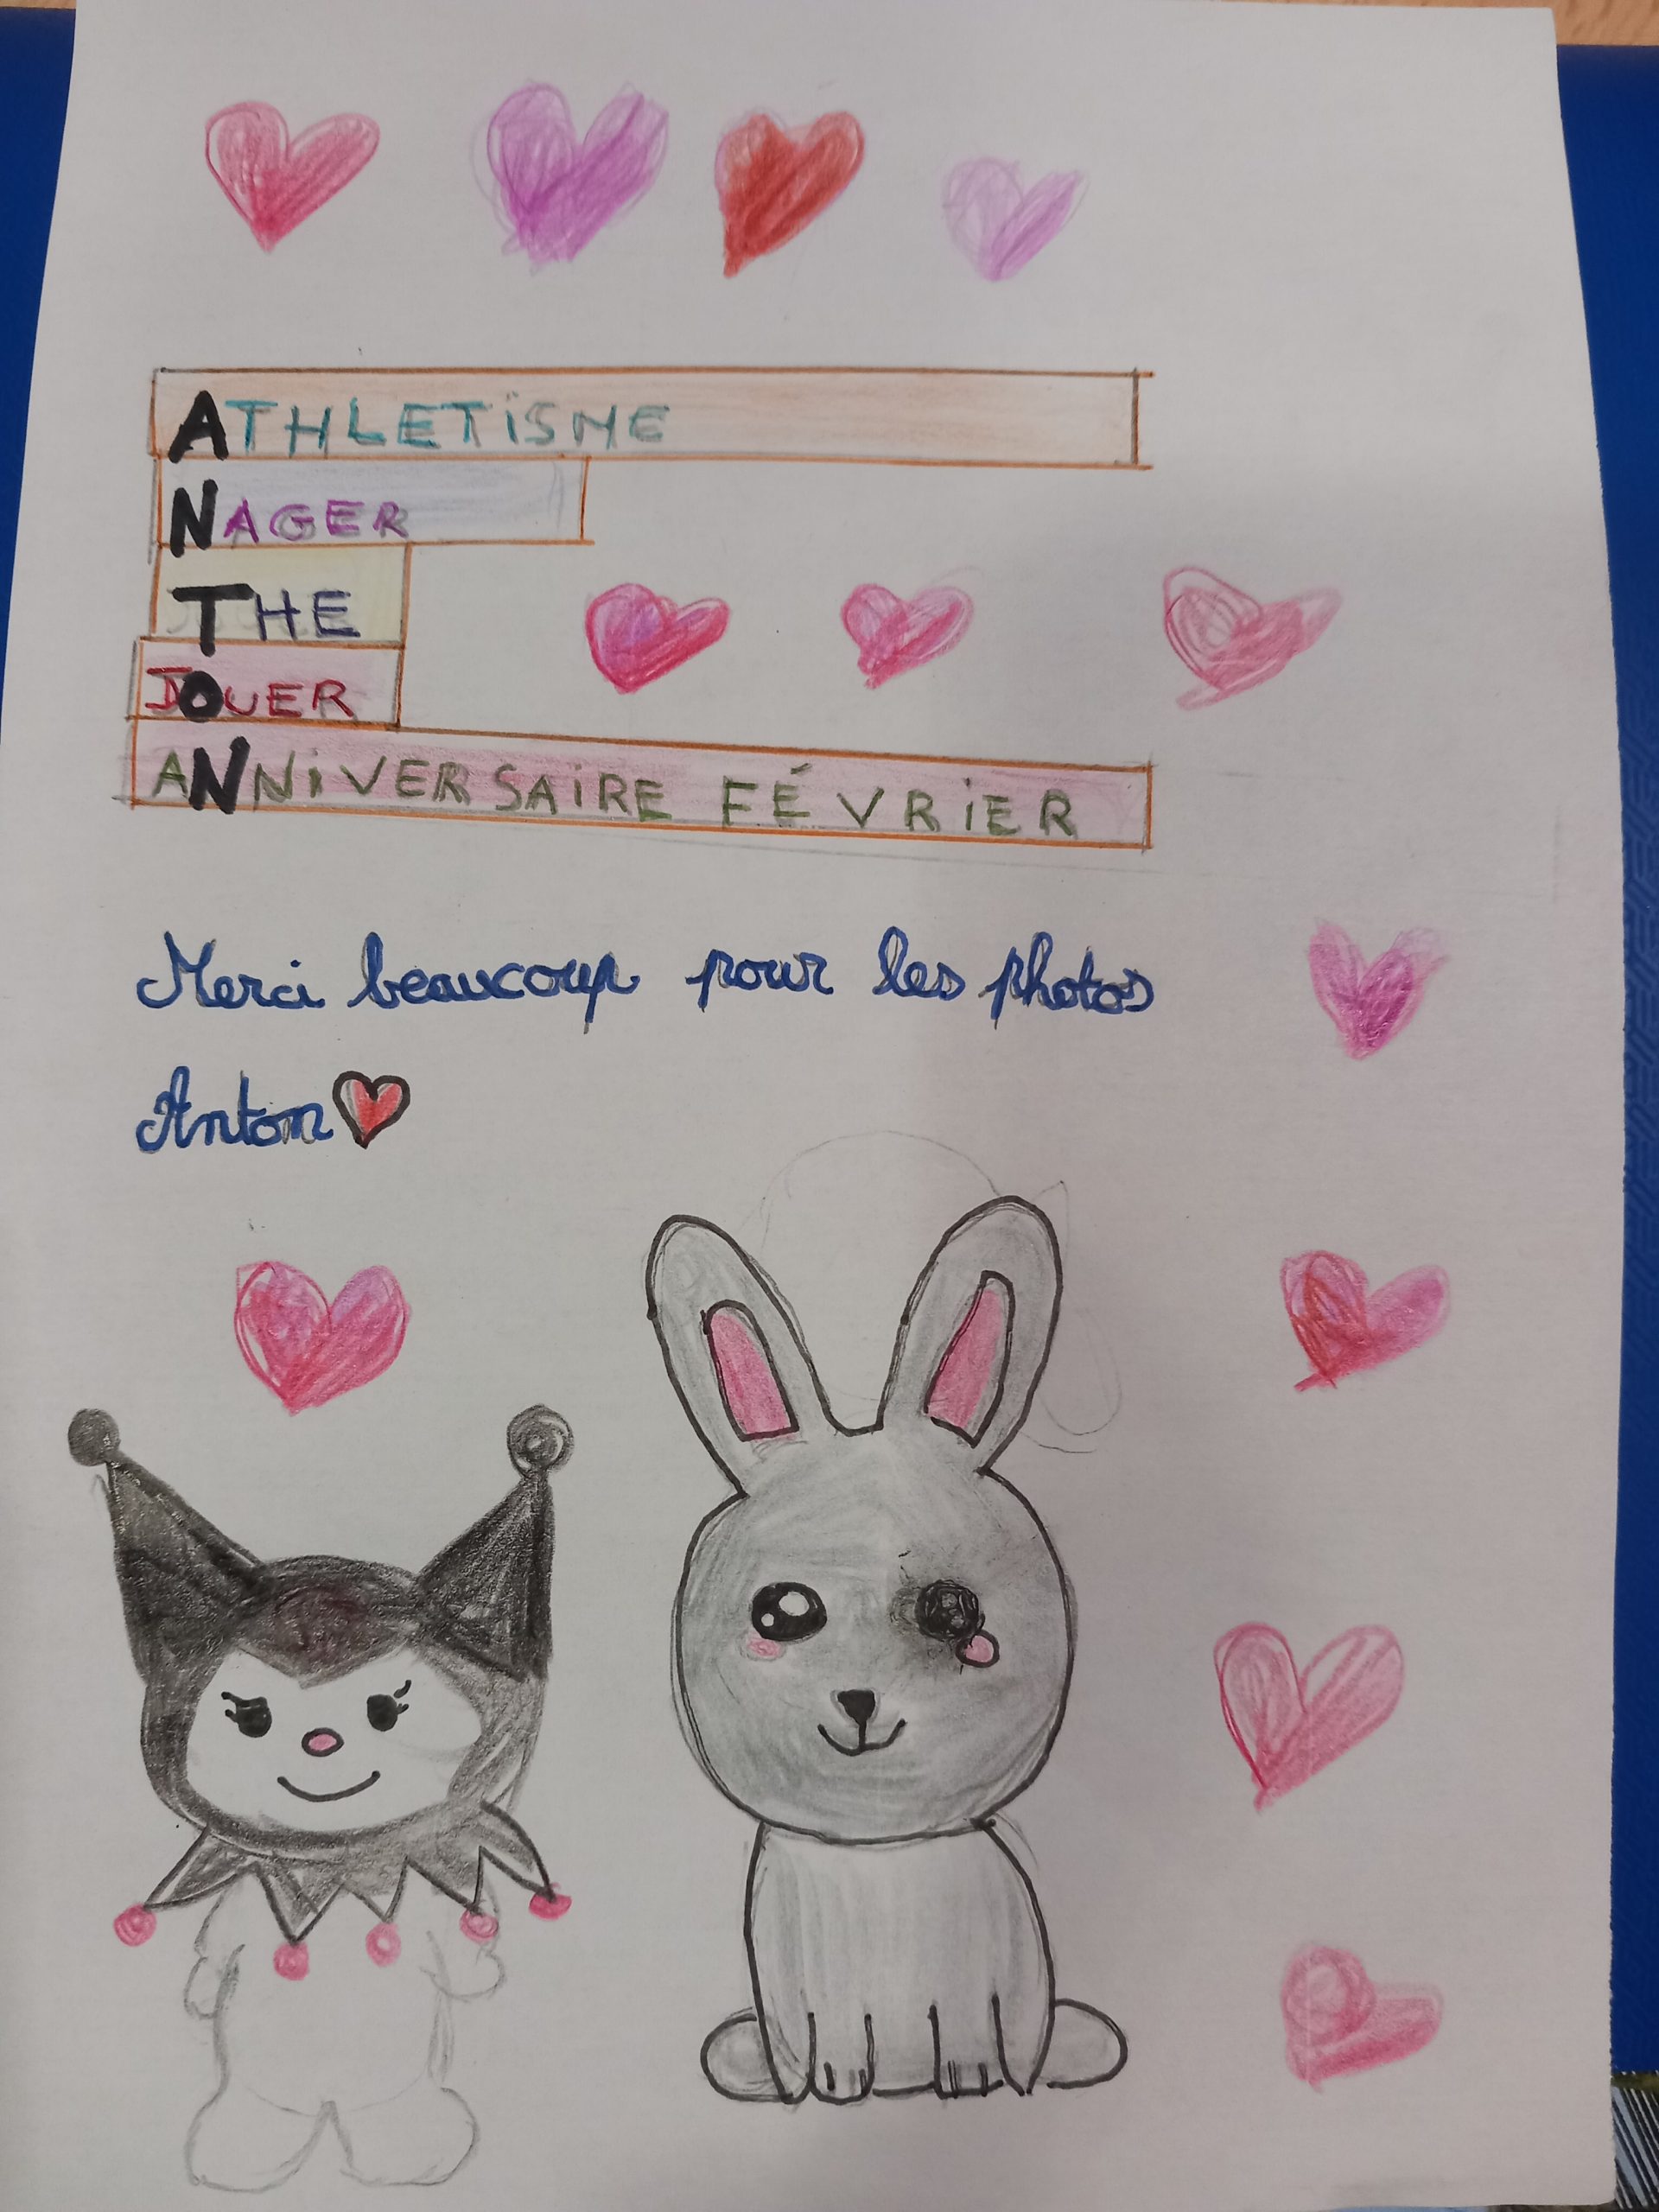 ATHLETiSME
NAGER
THE
JOUER
ANNiVERSAiRE FÉVRiER
Merci beaucoup pour les photos
Anton